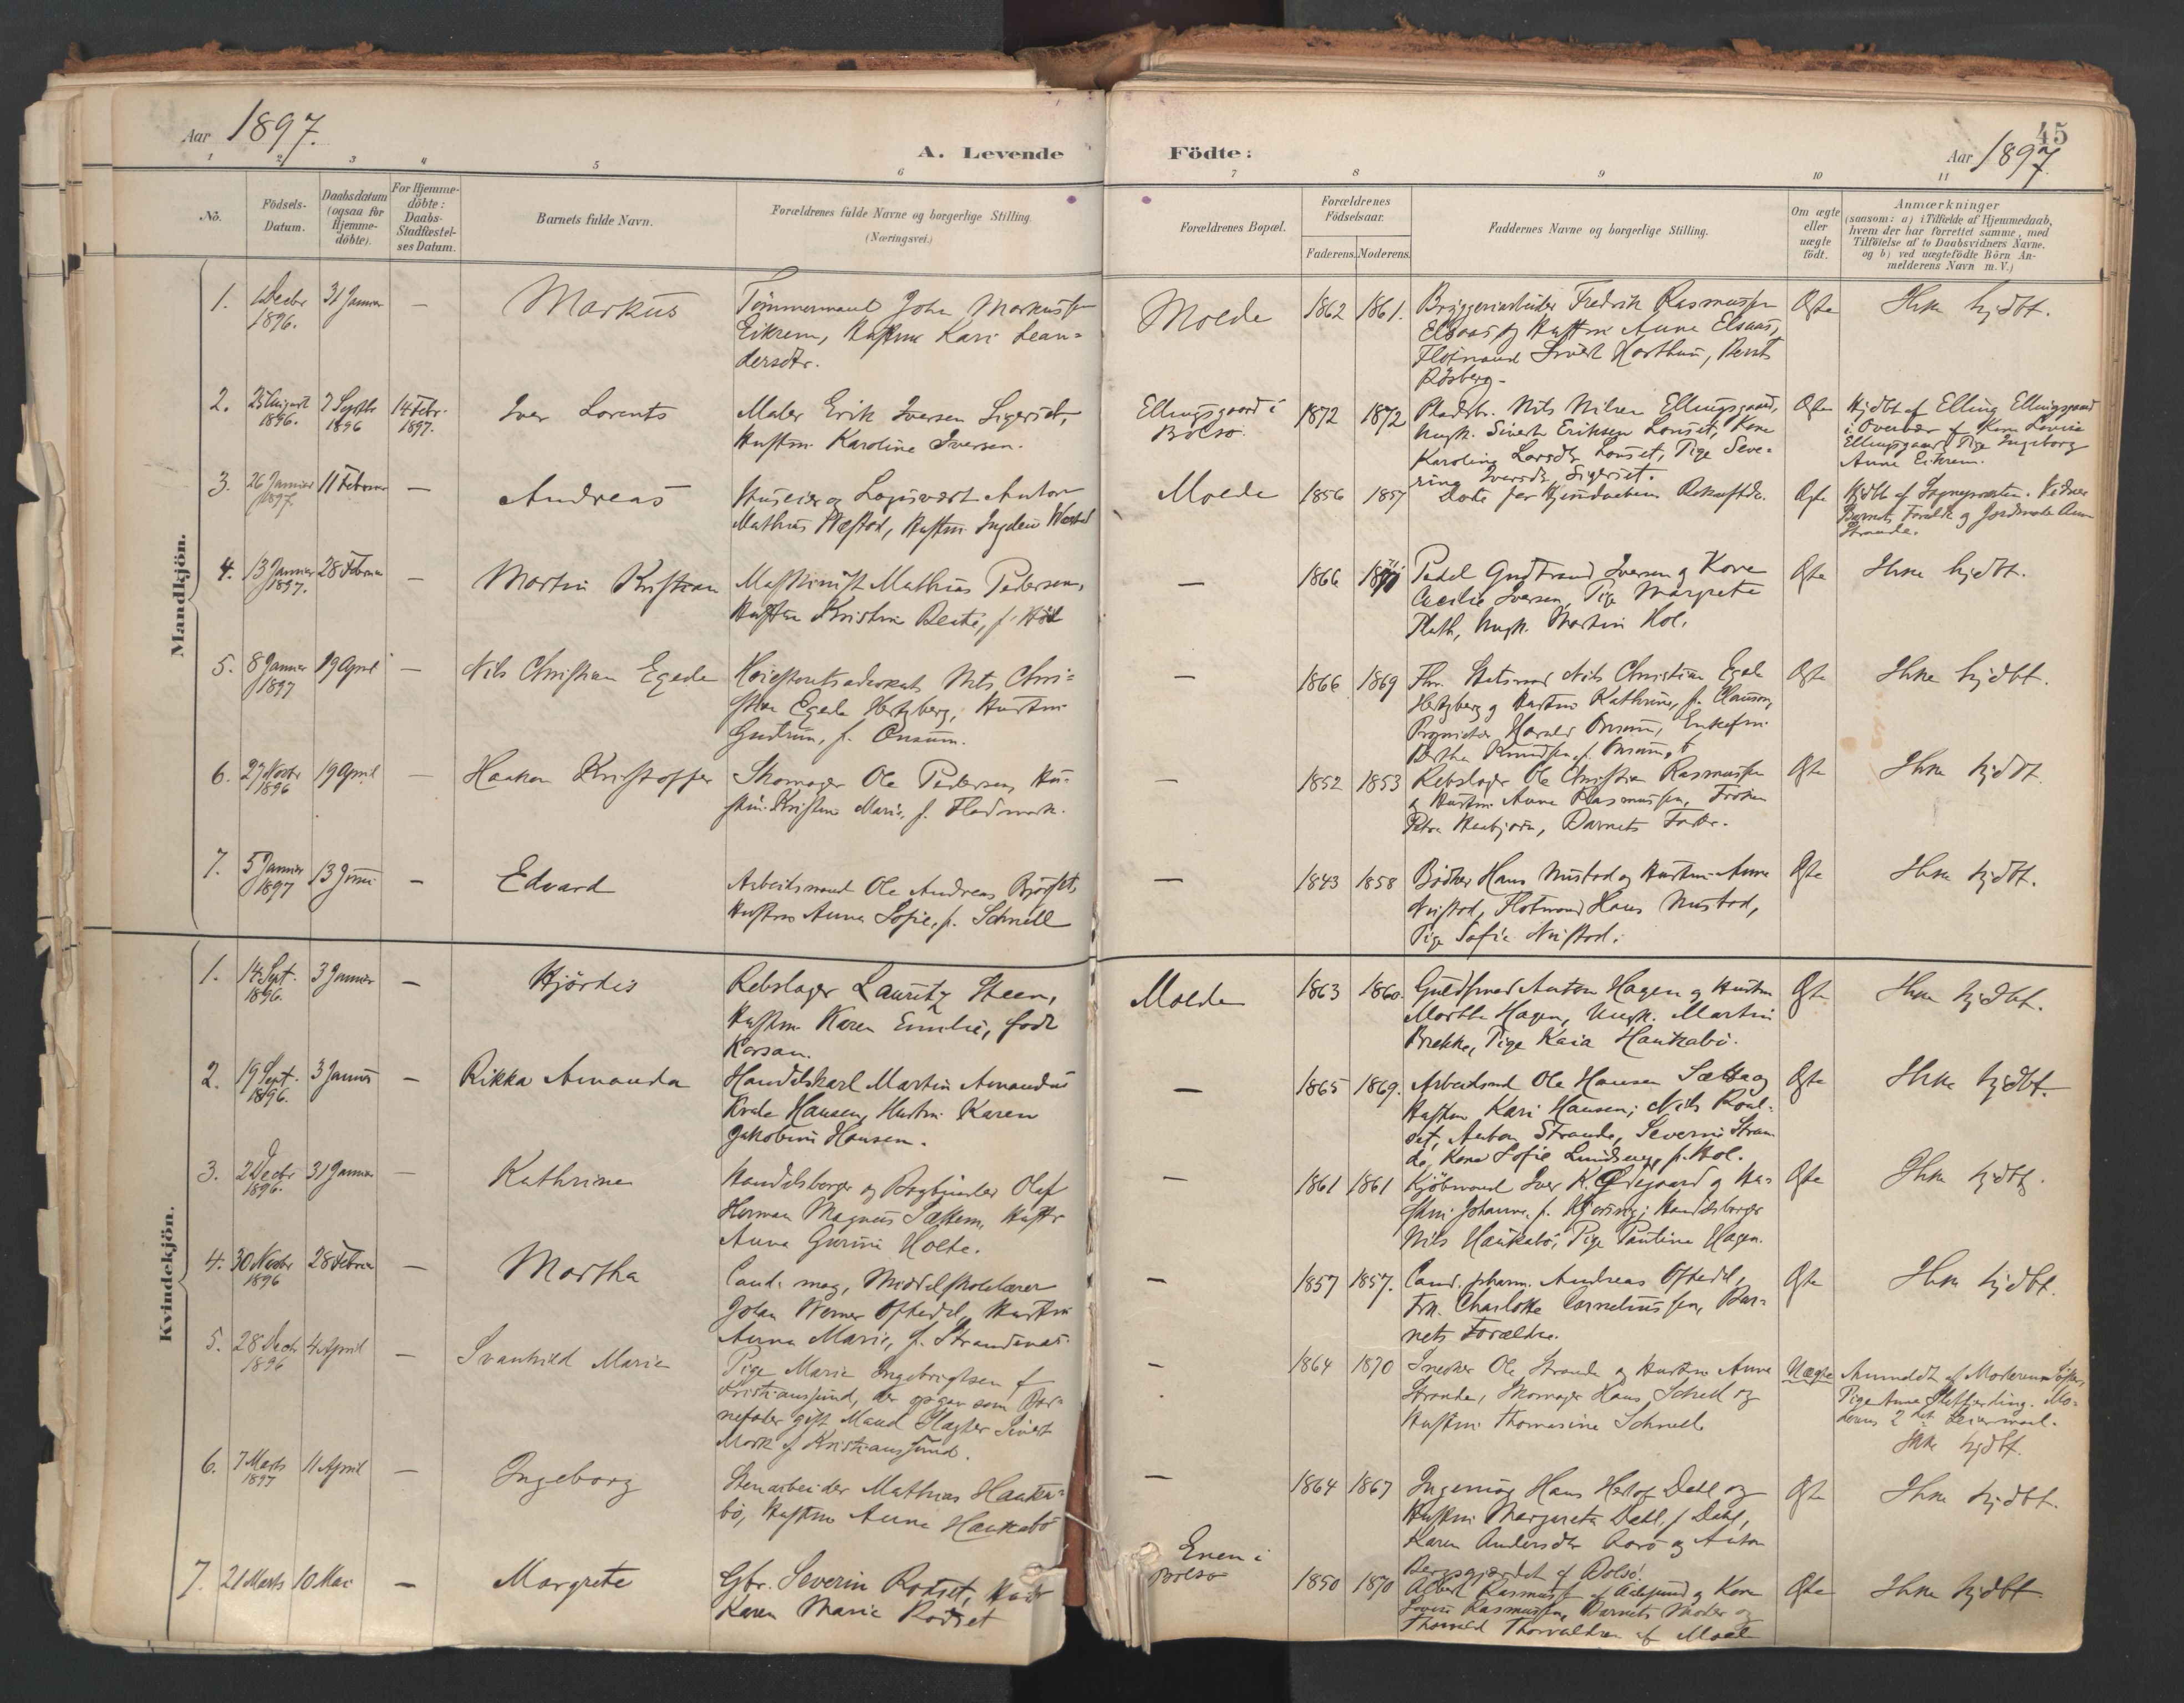 Aar 1897.
A. Levende Födte:
Aar 1897.
45
1 2 3 4 5 6 7 8 9 10 11
No.
Födsels-
Datum.
Daabsdatum
(ogsaa for
Hjemme-
döbte).
For Hjemme-
döbte:
Daabs-
Stadfæstel-
ses Datum.
Barnets fulde Navn.
Forældrenes fulde Navne og borgerlige Stilling.
(Næringsvei.)
Forældrenes Bopæl.
Forældrenes
Födselsaar.
Faderens. Moderens.
Faddernes Navne og borgerlige Stilling.
Om ægte
eller
uægte
födt.
Anmærkninger
(saasom: a) i Tilfælde af Hjemmedaab,
hvem der har forrettet samme, med
Tilföielse af to Daabsvidners Navne.
og b) ved uægtefödte Börn An-
melderens Navn m. V.)
Mandkjön.
1. 1 Decbr 31 Januar — Markus
1896.
Tömmermand John Markussen
Eikrem, Hustru Kari Lean-
dersdtr.
Molde 1862 1861.
Bryggeriarbeider Fredrik Rasmussen
Elsaas og Hustru Anne Elsaas,
Flötmand Sivert Harthun, Bernt
Rösberg.
Ægte Ikke hjdbt.
2. 25 August 7 Septbr 14 Febr.
1896. 1896 1897.
Iver Lorents
Maler Erik Iversen
Hustru Karoline Iversen.
Ellingsgaard i
Bolsö.
1872 1872
Nils Nilsen Ellingsgaard,
Ungk. Sivert Eriksen Lonset, Kone
Karoline Larsdtr Lonset, Pige Seve-
rine Iversdtr
Ægte
Hjdbt af Elling Ellingsgaard
i Overvær af Kone Lovise
Ellingsgaard, Pige Ingeborg
Anne Eikrem.
3. 26 Januar 11 Februar — Andreas
1897.
Huseier og Logivært Anton
Mathias Hustru
Molde 1856 1857
Ægte
Hjdbt af Sognepresten. Vidner
Barnets Forældre og Jordmoder Anne
Strande.
4. 13 Januar 28 Februar — Martin Kristian
1897.
Maskinist Mathias Pedersen,
Hustru Kristine Beate, f. Hol
— 1866
Gudbrand Iversen og Kone
Cecilie Iversen, Pige Margrete
Ungk. Martin Hol.
Ægte Ikke hjdbt.
5. 8 Januar 19 April — Nils Christian Egede
1897
Höiesteretsadvokat Nils Chri-
stian Egede Hertzberg, Hustru
Gudrun, f. Onsum.
— 1866 1869
Fhv. Statsraad Nils Christian Egede
Hertzberg og Hustru Kathrine, f.
Harald Onsum, Enkefru
Berthe Knudsen f. Onsum
Ægte Ikke hjdbt.
6. 27 Novbr 19 April — Haakon Kristoffer
1896
Skomager Ole Pedersen, Hu-
stru Kristine Marie, f. Fladmark.
— 1852 1853
Rebslager Ole Christian Rasmussen
og Hustru Anne Rasmussen, Fröken
Petra Barnets Fader.
Ægte Ikke hjdbt.
7. 5 Januar 13 Juni — Edvard
1897
Arbeidsmand Ole Andreas
Hustru Anna Sofie, f. Schnell
— 1843 1858
Bödker Hans Mustad og Hustru Anne
Hans Mustad,
Pige Sofie
Ægte Ikke hjdbt.
Kvindekjön.
1. 14 Sept. 3 Januar — Hjördis
1896.
Rebslager Lauritz Steen,
Hustru Karen Emilie, födt
Karsan.
Molde 1863 1860.
Guldsmed Anton Hagen og Hustru
Marthe Hagen, Ungk. Martin
Brekke, Pige Kaia Haukabö.
Ægte Ikke hjdbt.
2. 19 Sept. 3 Januar — Rikka Amanda
1896.
Handelskarl Martin Amandus
Hansen, Hustru Karen
Jakobine Hansen.
— 1865 1869.
Arbeidsmd Ole Hansen og
Hustru Kari Hansen; Nils Roal-
set, Anton Strande, Severine Stran-
de, Kone Sofie f. Hol.
Ægte Ikke hjdbt.
3. 2 Decbr 31 Januar — Kathrine
1896.
Handelsborger og Bogbinder Olaf
Herman Magnus Hustru
Anna Gurine Holte.
— 1861 1861
Kjöbmand Iver K. Ödegaard og Hu-
stru Johanne, f. Handelsborger
Nils Haukabö, Pige Pauline Hagen.
Ægte Ikke hjdbt.
4. 30 Novbr 28 Februar — Martha
1896
Cand. mag, Middelskolelærer
Johan Werner Oftedal, Hustru
Anna Marie, f.
— 1857 1857.
Cand. pharm. Andreas Oftedal,
Frk. Charlotte Corneliussen, Bar-
nets Forældre.
Ægte Ikke hjdbt.
5. 28 Decbr 4 April — Svanhild Marie
1896
Pige Marie Ingebrigtsen af
Kristianssund, der opgav som Bar-
nefader gift Mand Slagter Sivert
Mork af Kristianssund.
— 1864 1870
Snedker Ole Strande og Hustru Anne
Strande, Skomager Hans Schnell og
Hustru Thomasine Schnell
Uægte
Anmeldt af Moderens Söster,
Pige Anne Mo-
derens 2det Leiermaal.
Ikke hjdbt.
6. 7 Marts 11 April — Ingeborg
1897
Stenarbeider Mathias Hauka-
bö, Hustru Anne Haukabö
— 1864 1867
Ingeniör Hans Dahl og
Hustru Margrete Dahl, f. Dahl,
Karen Andersdtr og Anton
af Bolsö.
Ægte Ikke hjdbt.
7. 21 Marts 10 Mai — Margrete
Gbr. Severin Rodset, Hustr
Karen Marie Rodset
Enen i
Bolsö
1850 1870
Albert Rasmussen af Aalesund og Kone
Lovise Rasmussen, Barnets Moder og
Thorvald Thorvaldsen af
Ægte Ikke hjdbt.